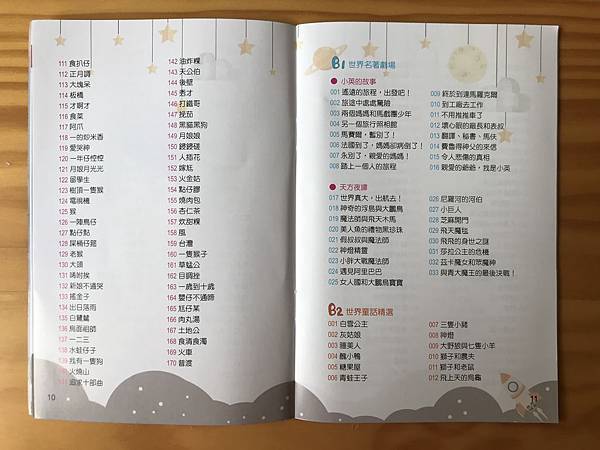 111 食扒仔
112 正月調
113 大塊呆
114 板橋
115 才啊才
116 食菜
117 阿爪
118 一的炒米香
119 愛哭神
120 一年仔悾悾
121 月娘月光光
122 留學生
123 樹頂一隻猴
124 電視機
125 猴
126 一陣鳥仔
127 點仔點
128 屎桶仔籠
129 老猴
130 大頭
131
132 新娘不通哭
133 搖金子
134 出日落雨
135 白鷺鷥
136 烏面祖師
137 一二三
138 水蛙仔子
139 我有一隻狗
140 火燒山
141
142 油炸粿
143 天公伯
144 後壁
145 憨才
146 打鐵哥
147 挽茄
148 黑貓黑狗
149 月娘娘
150
151 人插花
152 嫁尪
153 火金姑
154 點仔膠
155 燒肉包
156 杏仁茶
157 炊甜粿
158 風
159 台灣
160 一隻猴子
161 草蜢公
162 目睭挫
163 一歲到十歲
164 嬰仔不通啼
165 尪仔某
166 肉丸湯
167 土地公
168 食清食濁
169 火車
170 普渡
10
B1 世界名著劇場
● 小英的故事
001 遙遠的旅程，出發吧！
002 旅途中處處驚險
003 兩個媽媽和馬戲團少年
004 另一個旅行照相館
005 馬賽爾，暫別了！
006 法國到了，媽媽卻病倒了！
007 永別了，親愛的媽媽！
008 踏上一個人的旅程
009 終於到達馬羅克爾
010 到工廠去工作
011 不用推推車了
012 壞心眼的廠長和表叔
013 翻譯、秘書、馬伕
014 費魯得神父的來信
015 令人悲傷的真相
016 親愛的爺爺，我是小英
● 天方夜譚
017 世界真大，出航去！
018 神奇的浮島與大鵬鳥
019 魔法師與飛天木馬
020 美人魚的禮物黑珍珠
021 假叔叔與魔法師
022 神燈精靈
023 小胖大戰魔法師
024 遇見阿里巴巴
025 女人國和大鵬鳥寶寶
026 尼羅河的河伯
027 小巨人
028 芝麻開門
029 飛天魔毯
030 飛飛的身世之謎
031 莎拉公主的危機
032 茲卡魔女和眾魔神
033 與青大魔王的最後決戰！
B2 世界童話精選
001 白雪公主
002 灰姑娘
003 睡美人
004 醜小鴨
005 糖果屋
006 青蛙王子
007 三隻小豬
008 神燈
009 大野狼與七隻小羊
010 獅子和農夫
011 獅子和老鼠
012 飛上天的烏龜
11